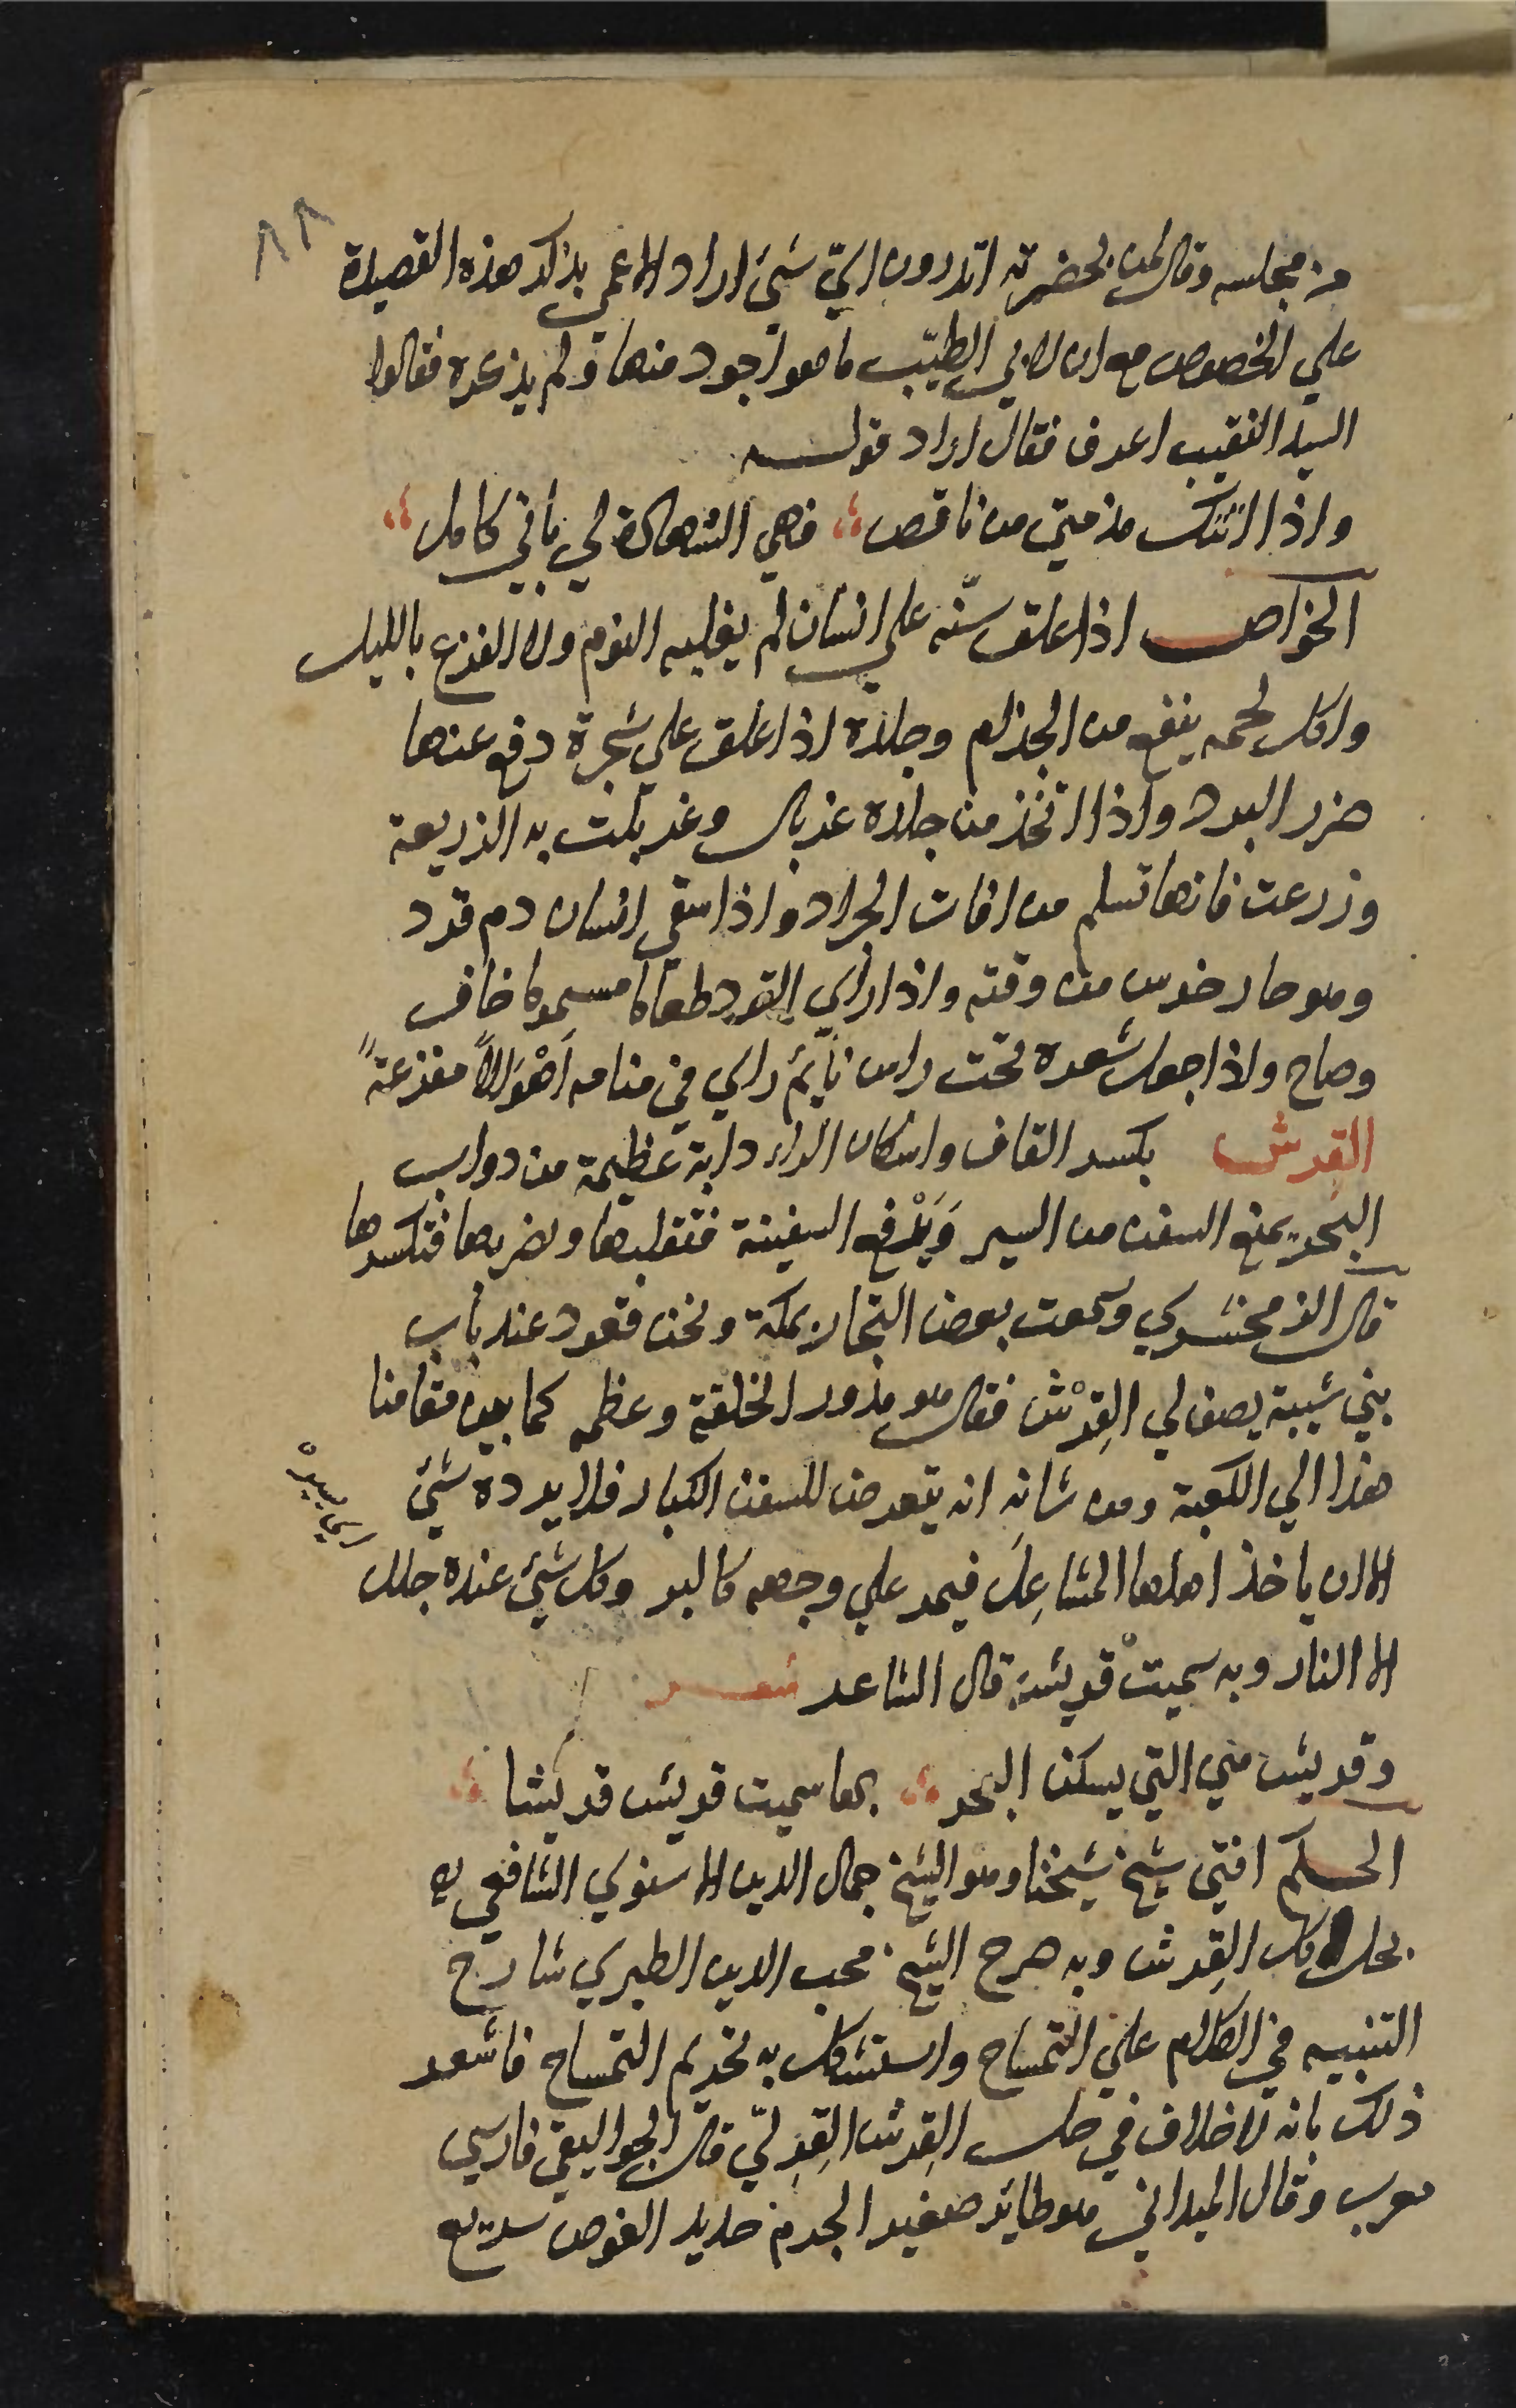 ٨٨
من مجلسه وقال لمن بحضرته اتدرون ايّ شيئ اراد الاعمى بذكر هذه القصيدة
علي الخصوص مع ان لابي الطيّب ما هو اجود منها ولم يذكره فقالوا
السيد النقيب اعرف فقال اراد قولــه
واذا اتتك مذمتي من ناقص ؛ فهي الشهادة لي بأني كامل ؛
الخواص اذا علق سنّه علي انسان لم يغلبه النوم ولا الفزع بالليل
واكل لحمه ينفع من الجذام وجلده اذا علق علي شجرة دفع عنها
ضرر البرد واذا اتخذ من جلده غربال وغربلت به الزريعة
وزرعت فانها تسلم من افات الجراد واذا سقي انسان دم قرد
وهو حار خرس من وقته واذا راي القرد طعاما مسموما خاف
وصاح واذا جعل شعره تحت راس نائم راي في منامه أهْوالاً مفزعةً
القِرش بكسر القاف واسكان الراء دابة عظيمة من دواب
البحر يمنع السفن من السير وَيَدْفع السفينة فتقلبها ويضربها فتكسرها
قال الزمخشري وسمعت بعض التجار بمكة ونحن قعود عند باب
بني شيبة يصف لي القِرْش فقال هو مدور الخلقة وعظمه كما بين مقامنا
هذا الي الكعبة ومن شانه انه يتعرض للسفن الكبار فلا يرده شيئ
اي يسيره
الا ان ياخذ اهلها المشاعِل فيمر علي وجهه كالبر وكل شيئ عنده جلل
الا النار وبه سميتْ قريش قال الشاعر شعــر
وقريش هي التي يسكن البحر ؛ بها سميت قريش قريشا ؛
الحكم افتي شيخ شيخنا وهو الشيخ جمال الدين الاسنوي الشافعي ره
بحل اكل القِرش وبه صرح الشيخ محب الدين الطبري شارح
التنبيه في الكلام علي التمساح واستشكل به تحريم التمساح فاشعر
ذلك بانه لا خلاف في حل القِرش القِرِلّي قال الجواليقي فارسي
معرب وقال الميداني هو طائر صغير الجرم حديد الغوص سريع